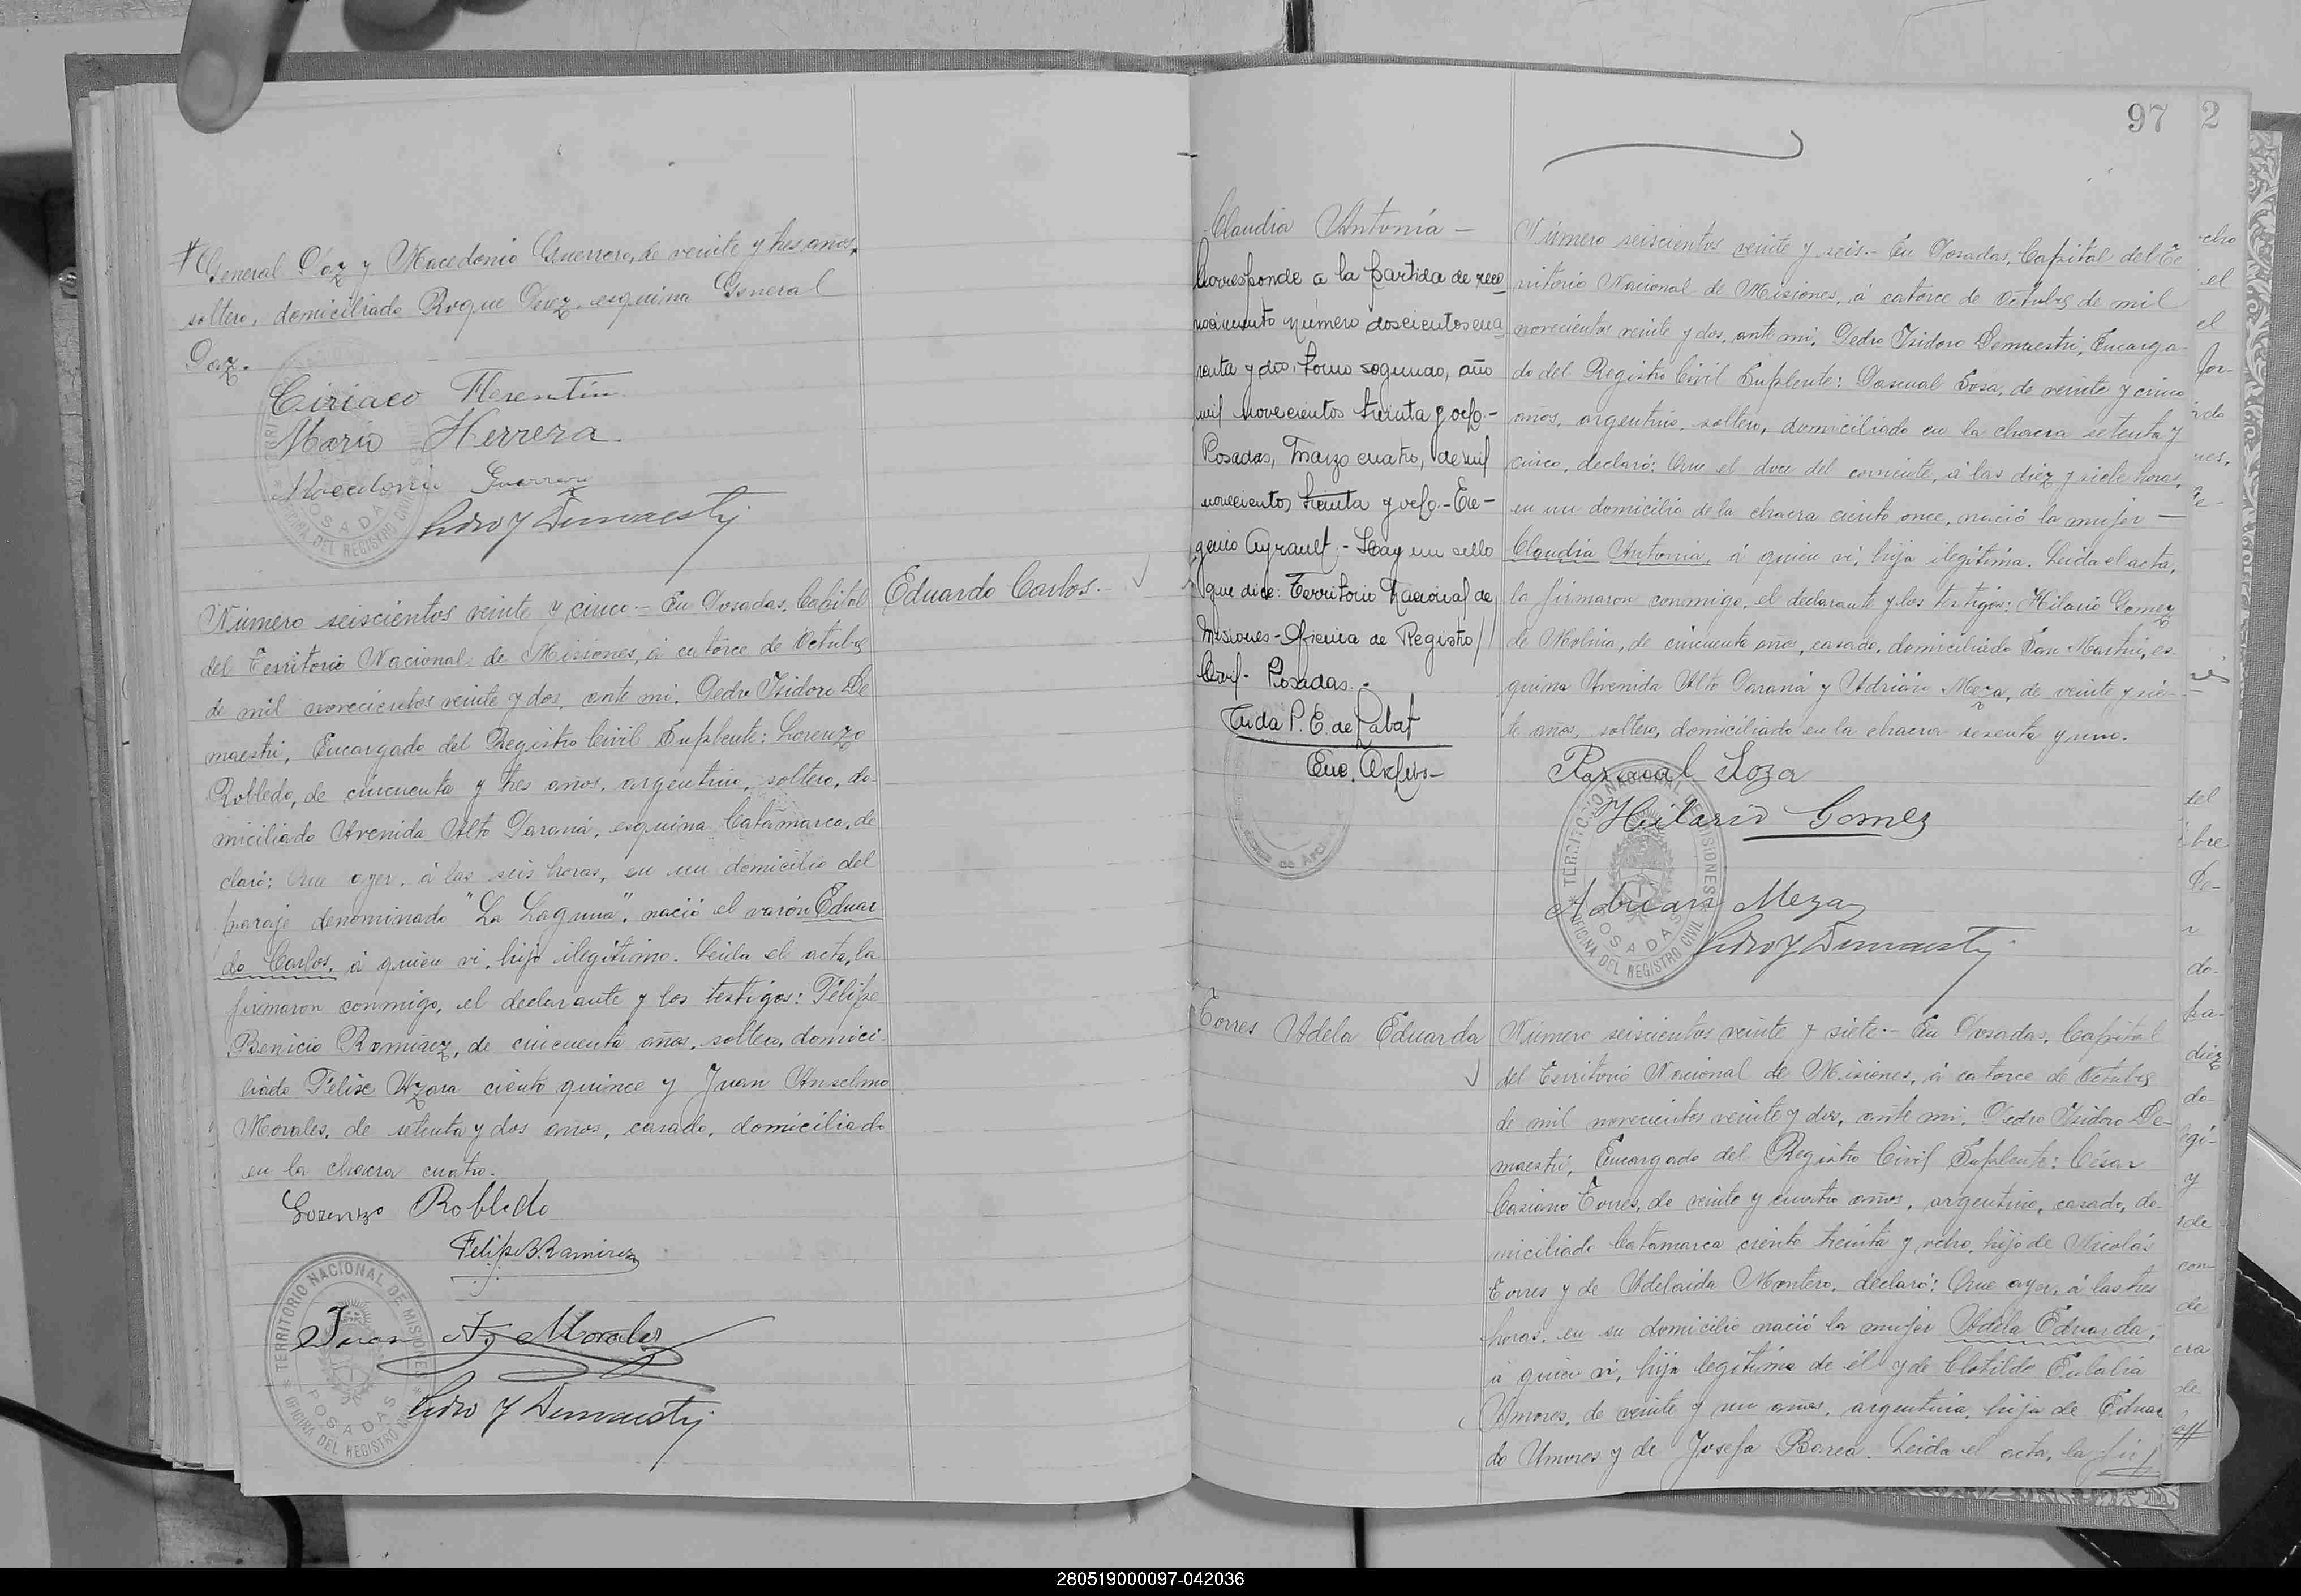 General Paz y Macedonio Guerrero, de veinte y tres años,
soltero, domiciliado Roque Perez, esquina General
Paz.
Ciriaco Florentín
Mario Herrera
Macedonio Guerrero
Pedro Y Demaestri
Eduardo Carlos.-
Número seiscientos veinte y cinco.- En Posadas, Capital
del Territorio Nacional de Misiones, á catorce de Octubre
de mil novecientos veinte y dos, ante mi, Pedro Isidoro De
maestri, Encargado del Registro Civil Suplente: Lorenzo
Robledo, de cincuenta y tres años, argentino, soltero, do
miciliado Avenida Alto Paraná, esquina Catamarca, de
claró: Que ayer, á las seis horas, en un domicilio del
paraje denominado "La Laguna", nació el varón Eduar
do Carlos, á quien vi, hijo ilegítimo. Leida el acta, la
firmaron conmigo, el declarante y los testigos: Félipe
Benicio Ramirez, de cincuenta años, soltero, domici-
liado Félix Azara ciento quince y Juan Anselmo
Morales, de setenta y dos años, casado, domiciliado
en la chacra cuatro.
Lorenzo Robledo
Felipe B. Ramirez
Juan A. Morales
Pedro Y Demaestri
TERRITORIO NACIONAL DE MISIONES
POSADAS
OFICINA DEL REGISTRO CIVIL
97
2
Claudia Antonia -
Corresponde a la partida de reco
nocimiento número doscientos cua
renta y dos, tomo segundo, año
mil novecientos treinta y ocho.-
Posadas, Marzo cuatro, de mil
novecientos treinta y ocho.- Eu-
genio Ayrault.- Hay un sello
que dice: Territorio Nacional de
Misiones - Oficina de Registro
Civil - Posadas.-
Número seiscientos veinte y seis.- En Posadas, Capital del Te
rritorio Nacional de Misiones, á catorce de Octubre de mil
novecientos veinte y dos, ante mi, Pedro Isidoro Demaestri, Encarga
do del Registro Civil Suplente: Pascual Sosa, de veinte y cinco
años, argentino, soltero, domiciliado en la chacra setenta y
cinco, declaró: Que el doce del corriente, á las diez y siete horas,
en un domicilio de la chacra ciento once, nació la mujer -
Claudia Antonia, á quien vi, hija ilegítima. Leida el acta,
la firmaron conmigo, el declarante y los testigos: Hilario Gomez
de Molina, de cincuenta años, casado, domiciliado San Martín, es-
quina Avenida Alto Paraná y Adrián Meza, de veinte y sie-
te años, soltero, domiciliado en la chacra sesenta y uno.
Pascual Soza
Hilario Gomez
Adrian Meza
Pedro Y Demaestri
TERRITORIO NACIONAL DE MISIONES
POSADAS
OFICINA DEL REGISTRO CIVIL
Torres Adela Eduarda
Número seiscientos veinte y siete.- En Posadas, Capital
del Territorio Nacional de Misiones, á catorce de Octubre
de mil novecientos veinte y dos, ante mi, Pedro Isidoro De-
maestri, Encargado del Registro Civil Suplente: César
Casiano Torres, de veinte y cuatro años, argentino, casado, do-
miciliado Catamarca ciento treinta y ocho, hijo de Nicolás
Torres y de Adelaida Montero, declaró: Que ayer, á las tres
horas, en su domicilio nació la mujer Adela Eduarda,
á quien vi, hija legítima de él y de Clotilde Eulalia
Amores, de veinte y un años, argentina, hija de Eduar
do Amores y de Josefa Borea. Leida el acta, la fir
280519000097-042036